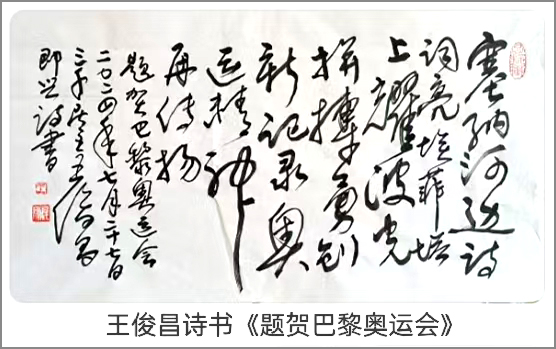 塞纳河边诗
词亮埃菲塔
上耀波光
拼搏勇创
新记录奥
运精神
再传扬
题贺巴黎奥运会
二〇二四年七月二十七日
王俊昌
即兴诗书
王俊昌诗书《题贺巴黎奥运会》